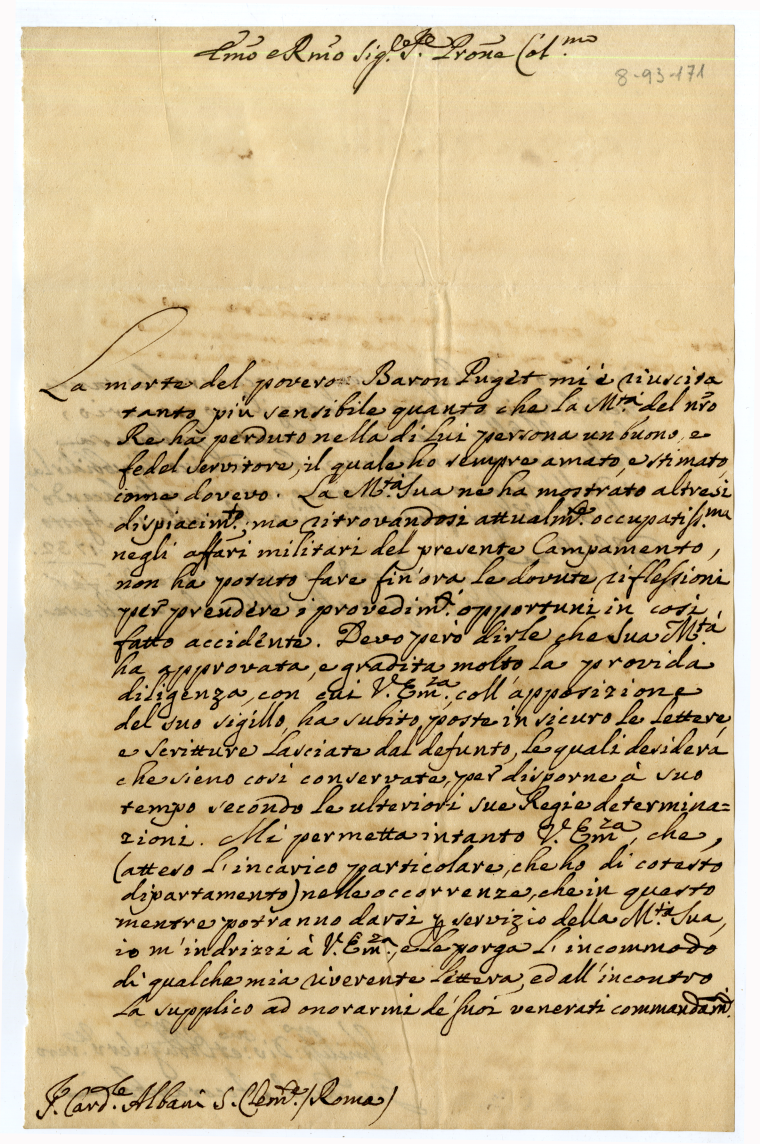 Emo e Rmo Sig.re P.re Prone Col.mo
8-93-171
La morte del povero Baron Puget mi è riuscita
tanto più sensibile quanto che la M.tà del nro
Re ha perduto nella di Lui persona un buono, e
fedel servitore, il quale ho sempre amato, e stimato,
come dovevo. La M.tà Sua ne ha mostrato altresi
dispiacim.to, ma ritrovandosi attualm.te occupatiss.ma
negli affari militari del presente Campamento,
non ha potuto fare fin'ora le dovute riflessioni
per prendere i provedim.ti opportuni in così
fatto accidente. Devo però dirle che Sua M.tà
ha approvata, e gradita molto la provida
diligenza, con cui V. Em.za, coll'apposizione
del suo sigillo, ha subito poste in sicuro le lettere,
e scritture lasciate dal defunto, le quali desidera
che sieno così conservate, per disporne à suo
tempo secondo le ulteriori sue Regie determina=
zioni. Mi permetta intanto V. Em.za, che,
(atteso l'incarico particolare, che ho di cotesto
dipartamento) nelle occorrenze, che in questo
mentre potranno darsi p servizio della M.tà Sua,
io m'indrizzi à V. Em.za, e le porga l'incommodo
di qualche mia riverente lettera, ed all'incontro
la supplico ad onorarmi de' suoi venerati commandam.ti
Card.le Albani S. Clem.te (Roma)